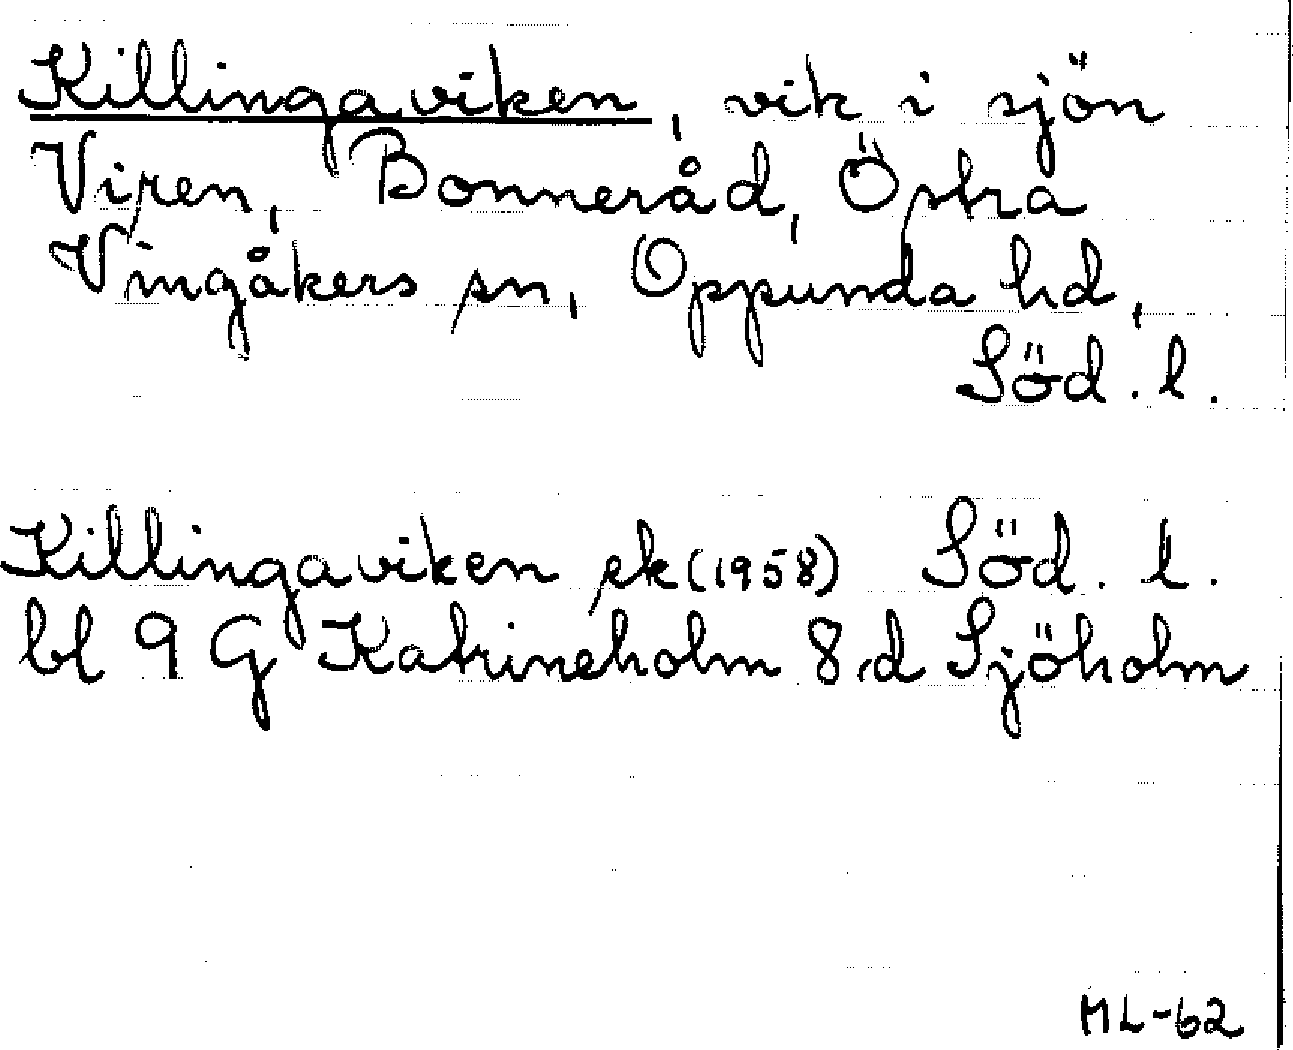 Killingaviken, vik i sjön
Viren, Bonneråd, Östra
Vingåkers sn, Oppunda hd,
Söd. l.
Killingaviken ek (1958) Söd. l.
bl 9 G Katrineholm 8 d Sjöholm
ML-62